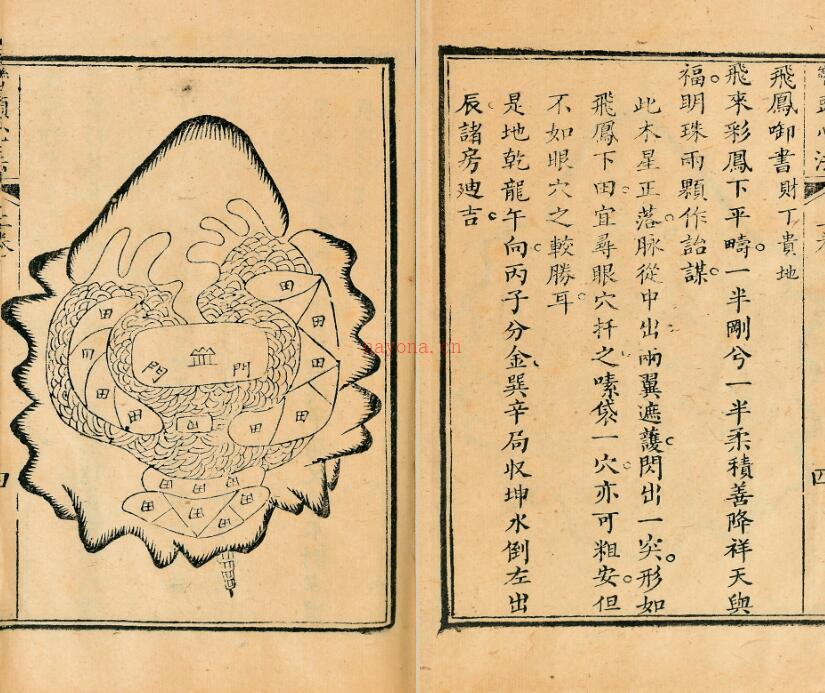 飛鳳御書財丁貴地
飛來彩鳳下平疇。一半剛兮一半柔積善降祥天與
福。明珠兩顆作詒謀。
此木星正落。脉從中出。兩翼遮護。閃出一突。形如
飛鳳下田。宜尋眼穴扦之。嗉袋一穴。亦可粗安。但
不如眼穴之較勝耳。
是地乾龍午向。丙子分金。巽辛局收坤水倒左出
辰諸房廸吉。
心法
四
田
田
田
田
田
田
田
田
田
田
田
田
門
門
山
田
田
田
田
田
田
田
nayona.cn